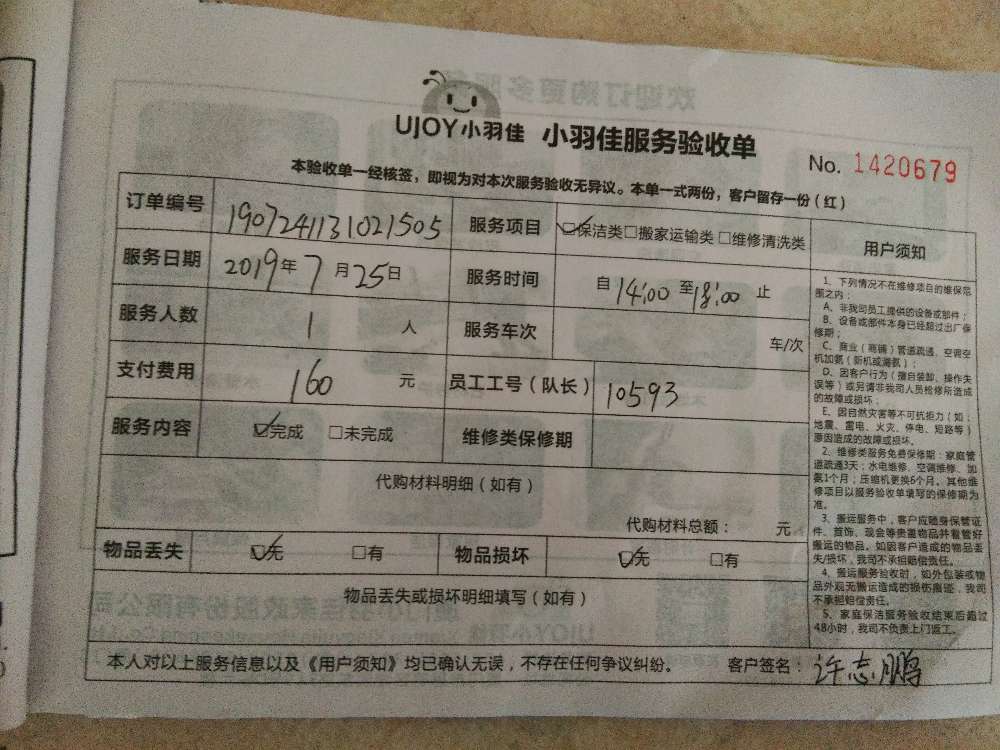 UJOY小羽佳 小羽佳服务验收单 No. 1420679
本验收单一经核签，即视为对本次服务验收无异议。本单一式两份，客户留存一份（红）
订单编号 1907241131021505 服务项目 ☑保洁类□搬家运输类□维修清洗类
服务日期 2019年7月25日 服务时间 自14:00至18:00止
服务人数 1 人 服务车次 车/次
支付费用 160 元 员工工号（队长） 10593
服务内容 ☑完成 □未完成 维修类保修期
代购材料明细（如有）
代购材料总额： 元
物品丢失 ☑无 □有 物品损坏 ☑无 □有
物品丢失或损坏明细填写（如有）
用户须知
1、下列情况不在维修项目的维保范
围之内：
A、非我司员工提供的设备或部件；
B、设备或部件本身已经超过出厂保
修期；
C、商业（商铺）管道疏通、空调空
机加氨（新机或漏氨）；
D、因客户行为（擅自装卸、操作失
误等）或另请非我司人员检修所造成
的故障或损坏；
E、因自然灾害等不可抗拒力（如：
地震、雷电、火灾、停电、短路等）
原因造成的故障或损坏。
2、维修类服务免费保修期：家庭管
道疏通3天；水电维修、空调维修、加
氨1个月；压缩机更换6个月。其他维
修项目以服务验收单填写的保修期为
准。
3、搬运服务中，客户应随身保管证
件、首饰、现金等贵重物品并看管好
搬运的物品。如因客户造成的物品丢
失/损坏，我司不承担赔偿责任。
4、搬运服务验收时，如外包装或物
品外观无搬运造成的损伤痕迹，我司
不承担赔偿责任。
5、家庭保洁服务验收结束后超过
48小时，我司不负责上门返工。
本人对以上服务信息以及《用户须知》均已确认无误，不存在任何争议纠纷。 客户签名： 许志鹏